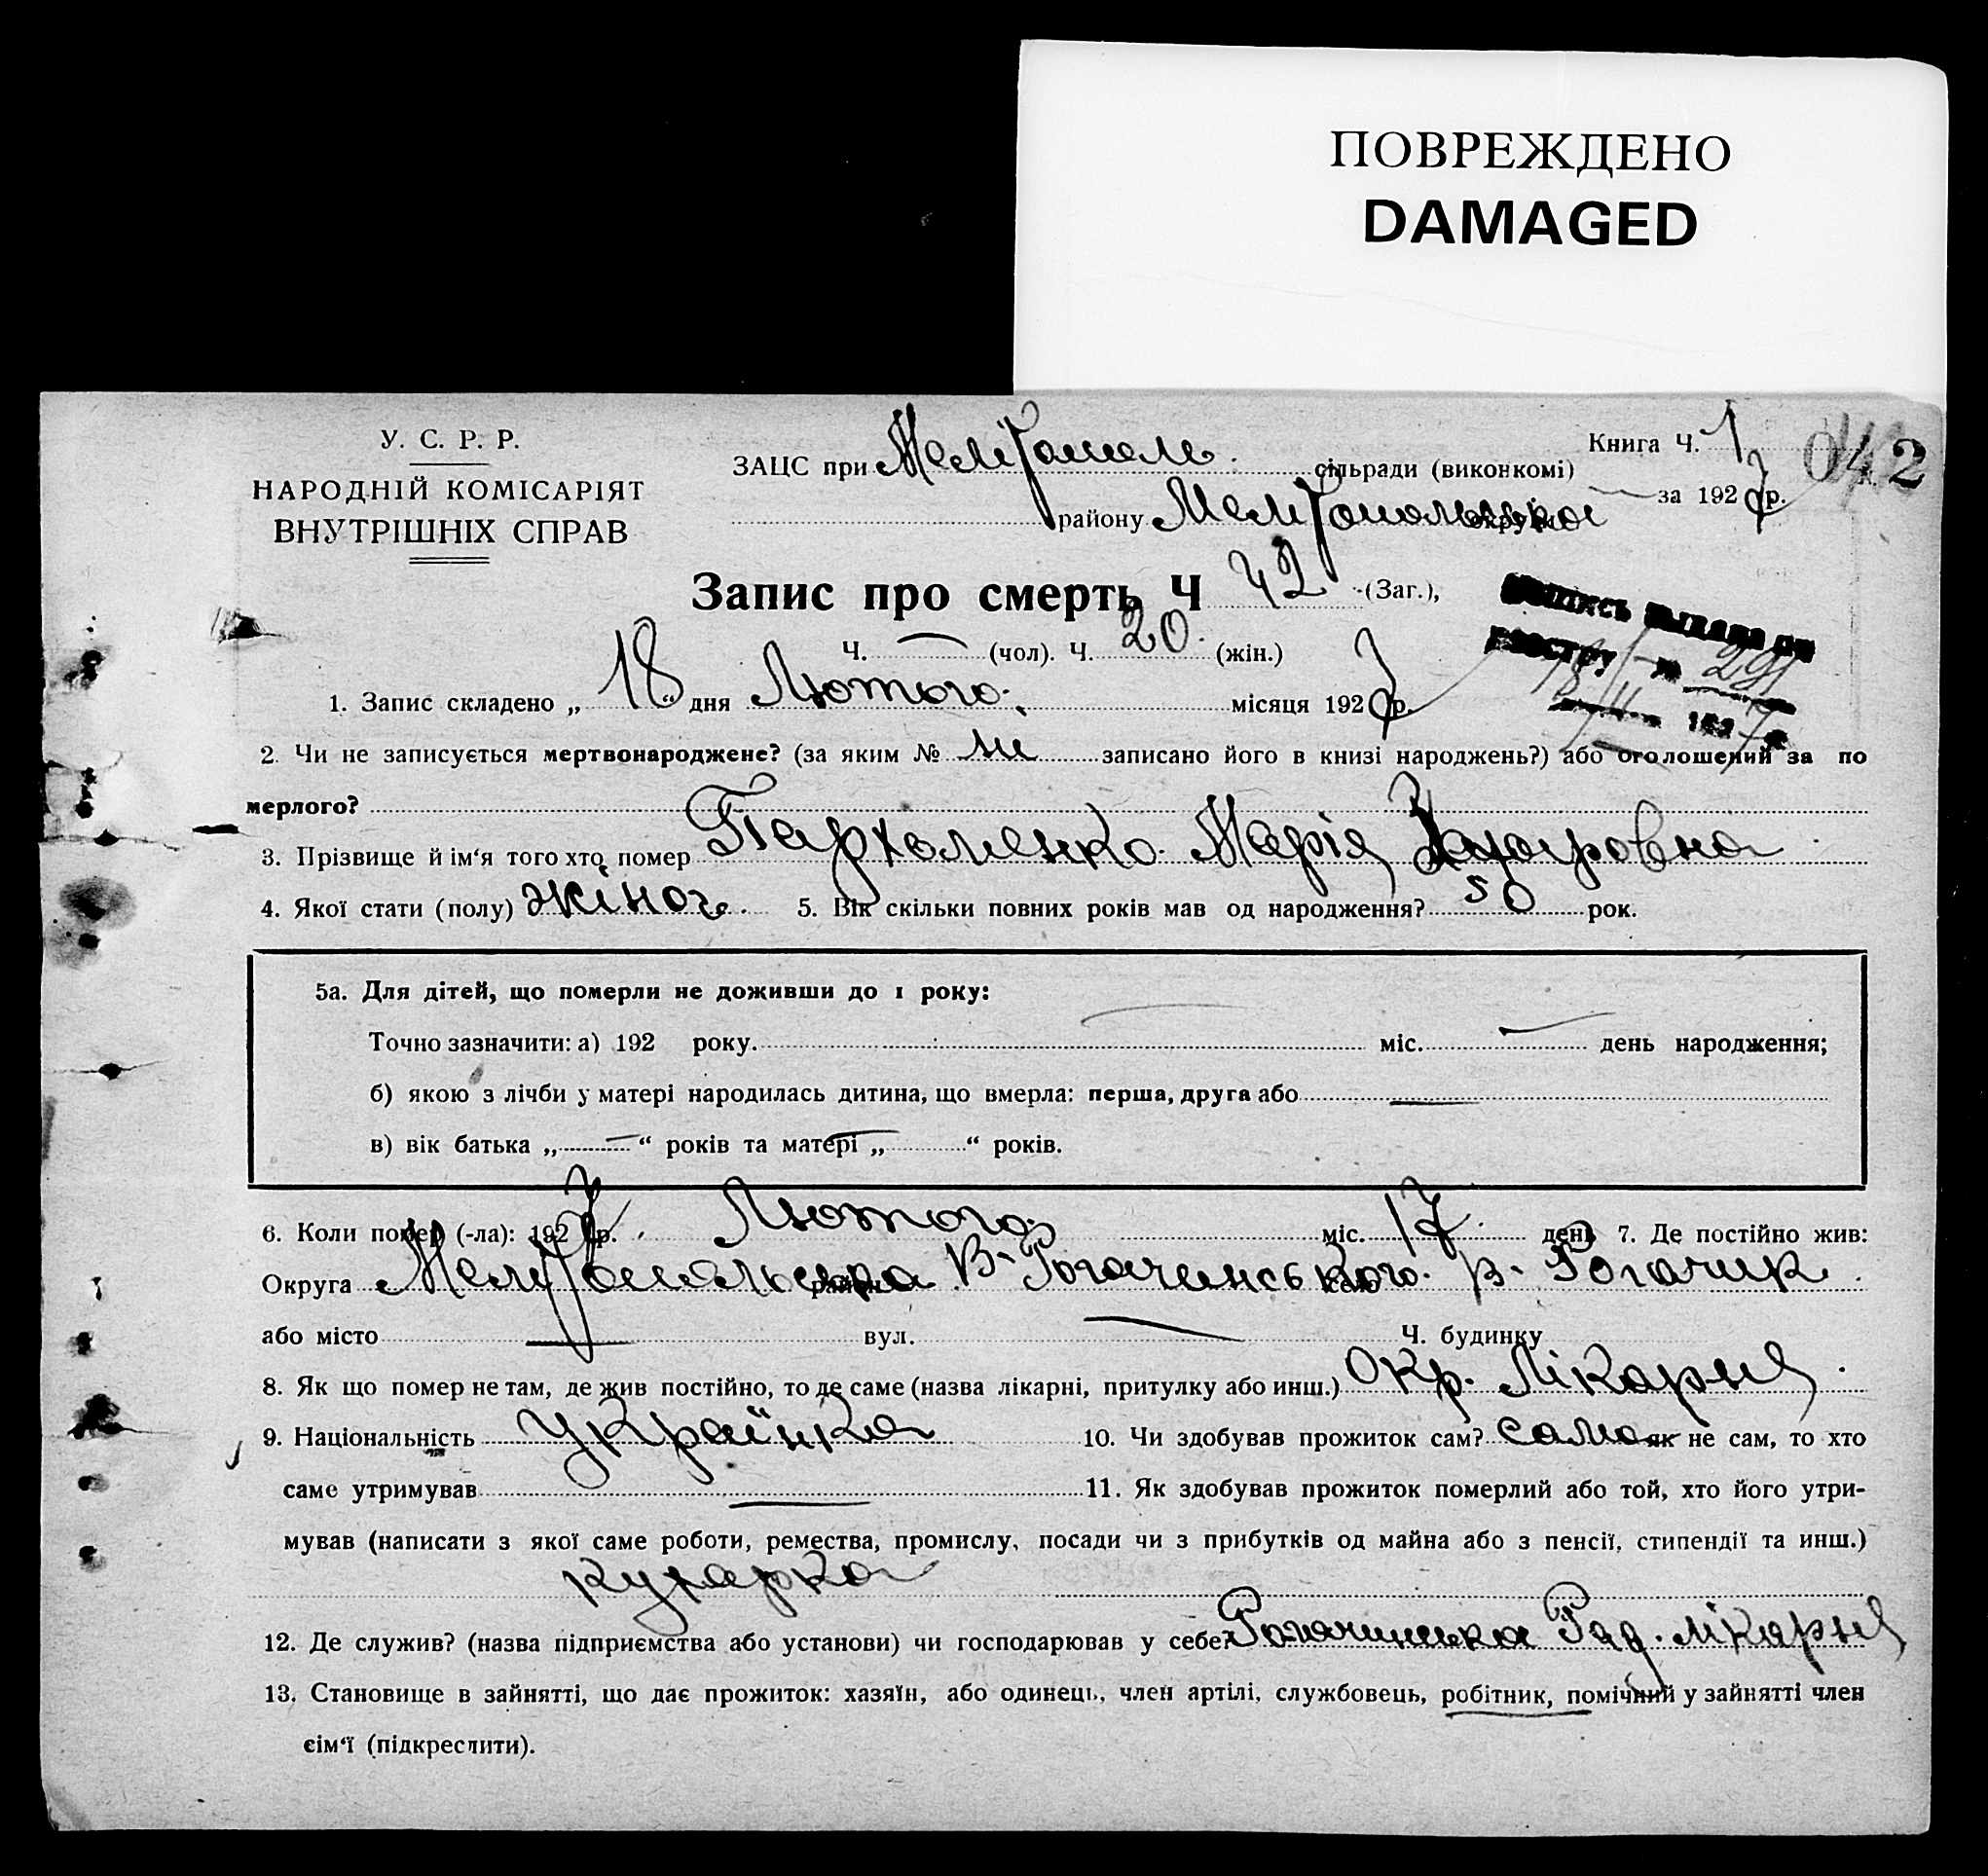 ПОВРЕЖДЕНО
DAMAGED
У. С. Р. Р.
НАРОДНІЙ КОМІСАРІЯТ
ВНУТРІШНІХ СПРАВ
Книга Ч. 1
042
ЗАЦС при Мелітополь сільради (виконкомі) за 1927 р.
району Мелітопольської округи
Запис про смерть Ч 42 (Заг.),
Ч. — (чол). Ч. 20 (жін.)
1. Запис складено „18“ дня Лютого місяця 1927 р.
2. Чи не записується мертвонароджене? (за яким № ні записано його в книзі народжень?) або оголошений за по
мерлого?
3. Прізвище й ім‘я того хто помер Пархоменко Марія
4. Якої стати (полу) жіноч. 5. Вік скільки повних років мав од народження? 50 рок.
5а. Для дітей, що померли не доживши до 1 року:
Точно зазначити: а) 192 року. міс. день народження;
б) якою з лічби у матері народилась дитина, що вмерла: перша, друга або —
в) вік батька „—“ років та матері „—“ років.
6. Коли помер (-ла): 1927 р. Лютого міс. 17 день 7. Де постійно жив:
Округа Мелітопольська район В-Рогачинського село В-Рогачик
або місто — вул. — Ч. будинку
8. Як що помер не там, де жив постійно, то де саме (назва лікарні, притулку або инш.) Окр. Лікарня
9. Національність Українка 10. Чи здобував прожиток сам? сама як не сам, то хто
саме утримував — 11. Як здобував прожиток померлий або той, хто його утри-
мував (написати з якої саме роботи, ремества, промислу, посади чи з прибутків од майна або з пенсії, стипендії та инш.)
кухарка
12. Де служив? (назва підприємства або установи) чи господарював у себе? Рогачинська Рад. лікарня
13. Становище в зайнятті, що дає прожиток: хазяїн, або одинець, член артілі, службовець, робітник, помічний у зайнятті член
сім‘ї (підкреслити).